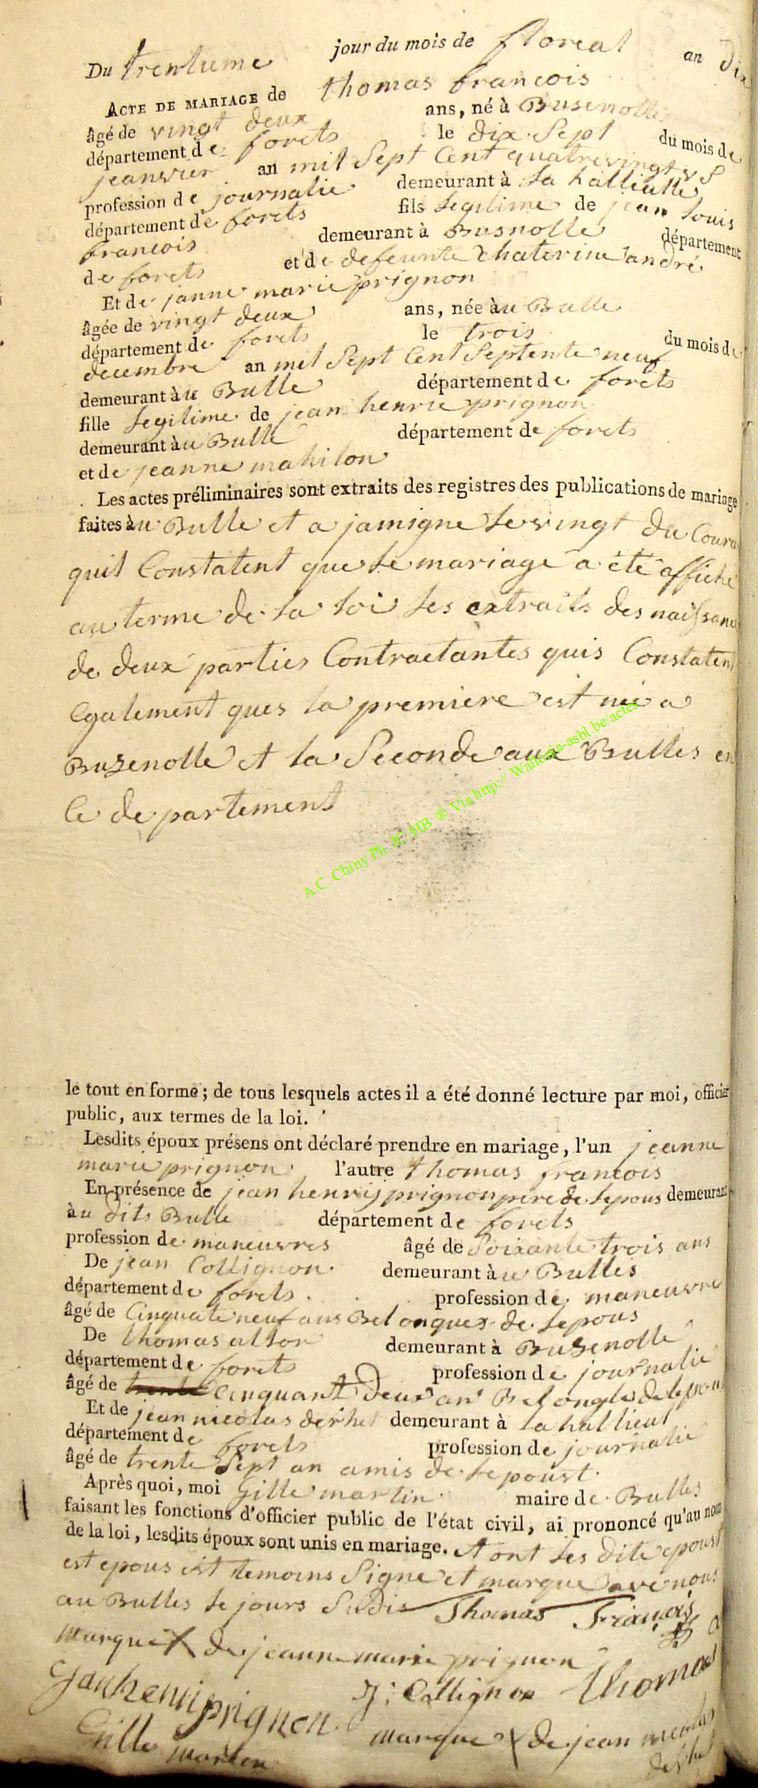 Du trentieme jour du mois de floreal an Dix
ACTE DE MARIAGE de thomas francois
âgé de vingt deux ans, né à Busenolle
département de forets le dix Sept du mois de
jeanvier an mil Sept Cent quatrevingt
profession de journalié demeurant à la hallieulle
département de forets fils legitime de jean louis
francois demeurant à Busnolle département
de forets et de defeunte Chaterine andré
Et de janne marie prignon
âgée de vingt deux ans, née àu Bulle
département de forets le trois du mois de
decembre an mil Sept Cent Septente neuf
demeurant àu Bulle département de forets
fille legitime de jean henrie prignon
demeurant àu Bulle département de forets
et de jeanne mahilon
Les actes préliminaires sont extraits des registres des publications de mariage
faites àu Bulle et a jamigne le vingt du Coura
quil Constatent que le mariage a été affiché
au terme de la loi les extraits des naissance
de deux parties Contractantes quis Constatent
Egalement ques la premiere est né a
Buzenolle et la Seconde aux Bulles en
Ce departement
A.C. Chiny Ph. B. MB ® Via http:// Wallonia-asbl.be/actes
le tout en forme; de tous lesquels actes il a été donné lecture par moi, officier
public, aux termes de la loi.
Lesdits époux présens ont déclaré prendre en mariage, l'un jeanne
marie prignon l'autre thomas francois
En présence de jean henrij prignon pere de lepous demeurant
àu dits Bulle département de forets
profession de maneuvres âgé de Soixante trois ans
De jean Collignon demeurant àu Bulles
département de forets profession de maneuvre
âgé de Cinquate neuf ans Bel onques de lepous
De thomas demeurant à Buzenolle
département de forets profession de journalié
âgé de trente Cinquant deux an Bel ongles de lepous
Et de jean nicolas derhet demeurant à la hallieul
département de forets profession de journalié
âgé de trente Sept an amis de lepoust
Après quoi, moi Gille martin maire de Bulles
faisant les fonctions d'officier public de l'état civil, ai prononcé qu'au nom
de la loi, lesdits époux sont unis en mariage. et ont les dite epoust
est epous est temoins Signe et marque ave nous
au Bulles le jours Sudis Thomas François
marque X de jeanne marie prignon
Janhenri prignon J: Collignon thomas
Gille martin marque X de jean nicolas
derhet